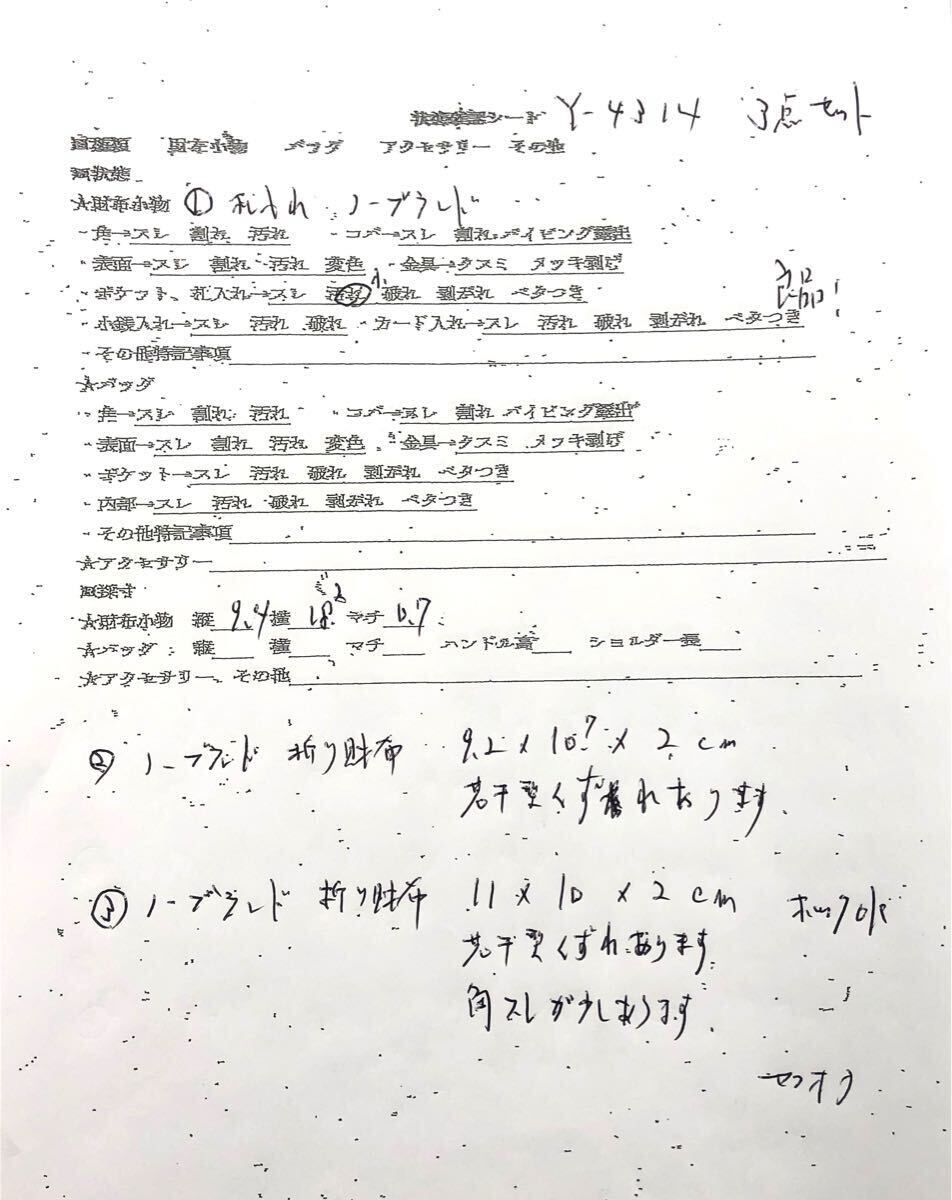 状態確認シート Y-4314 3点セット
財布小物 バッグ アクセサリー その他
状態
☆財布小物 ① 札入れ ノーブランド
・角→スレ 割れ 汚れ ・コバ→スレ 割れ パイピング露出
・表面→スレ 割れ 汚れ 変色 ・金具→クスミ メッキ剥げ
・ポケット、札入れ→スレ 汚れ 小 破れ 剥がれ ベタつき
・小銭入れ→スレ 汚れ 破れ ・カード入れ→スレ 汚れ 破れ 剥がれ ベタつき
・その他特記事項
☆バッグ
・角→スレ 割れ 汚れ ・コバ→スレ 割れ パイピング露出
・表面→スレ 割れ 汚れ 変色 ・金具→クスミ メッキ剥げ
・ポケット→スレ 汚れ 破れ 剥がれ ベタつき
・内部→スレ 汚れ 破れ 剥がれ ベタつき
・その他特記事項
☆アクセサリー
採寸
☆財布小物 縦 9.4 横 18.2 マチ 0.7
☆バッグ: 縦 横 マチ ハンドル高 ショルダー長
☆アクセサリー、その他
② ノーブランド 折り財布 9.2 x 10.7 x 2 cm
若干型くずれあります.
③ ノーブランド 折り財布 11 x 10 x 2 cm ホックOK
若干型くずれあります.
角スレが少しあります.